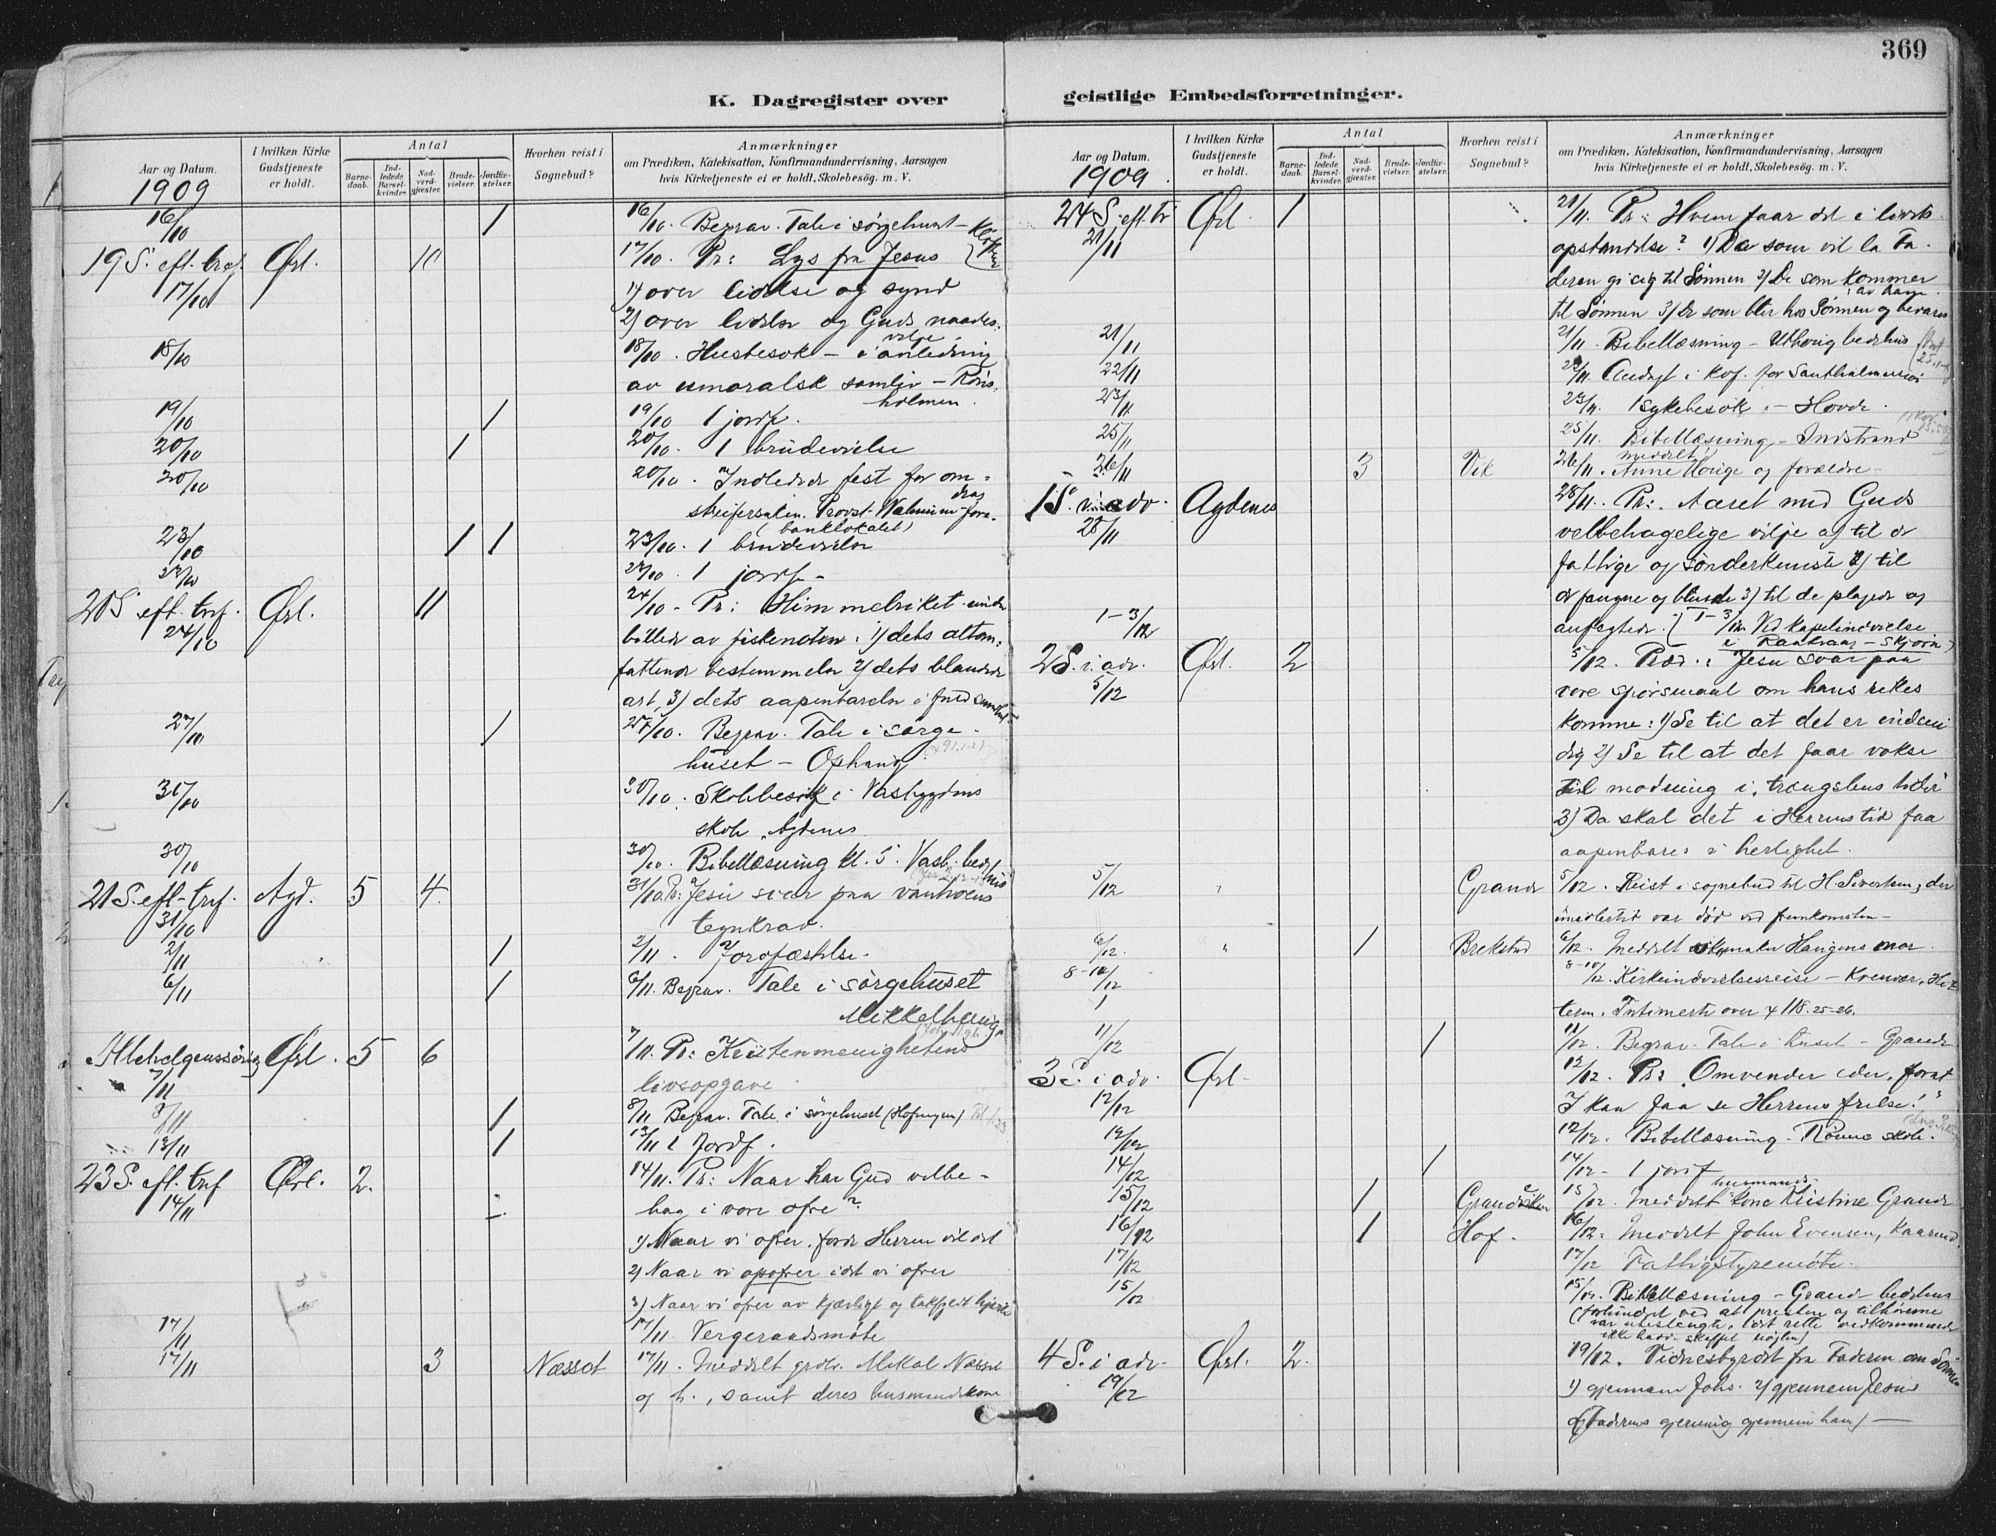 369
K. Dagregister over geistlige Embedsforretninger.
Aar og Datum.
1909
I hvilken Kirke Gudstjeneste er holdt.
Antal
Barnedaab.
Indledede Barselkvinder.
Nadverdgjæster.
Brudevielser.
Jordfæstelser.
Hvorhen reist i Sognebud?
Anmærkninger
om Prædiken, Katekisation, Konfirmandundervisning, Aarsagen
hvis Kirketjeneste ei er holdt, Skolebesög. m. V.
16/10 1 16/10. Begrav. Tale i sørgehuset
19 S. eft. tref. Ørl. 10 17/10. Pr: Lys fra Jesus
17/10 1) over lidelse og synd
2) over lidelse og Guds naades-
vilje.
18/10 18/10. Husbesøk – i anledning
av umoralsk samliv –
holmen.
19/10 1 19/10 1 jordf.
20/10 1 20/10. 1 brudevielse
20/10 20/10. Indledede fest for om-
streifersaken. Provst
(banklokalet)
23/10 1 1 23/10. 1 brudevielse
23/10 1 jordf.
20 S eft. tref. Ørl. 11 24/10 – Pr: Himmelriket under
24/10 billede av fiskenoten: 1) dets altom-
fattende bestemmelse 2) dets blandede
art, 3) dets aapenbarelse i
27/10 1 27/10. Begrav. Tale i sørge-
huset – Ophaug
30/10 30/10. Skolebesøk i Vasbygdens
skole, Agdenes
30/10 30/10. Bibellæsning kl. 5. Vasb. bedehus
21 S. eft. tref. Agd. 5 4 31/10. Pr: Jesu svar paa vantroens
31/10 tegnkrav.
2/11 1 2/11. Jordfæstelse.
6/11 1 6/11. Begrav. Tale i sørgehuset
Mikkelhaug
Allehelgenssøndag Ørl. 5 6 7/11. Pr: Kristenmenighetens
7/11 livsopgave
8/11 1 8/11 Begrav. Tale i sørgehuset (Hofringen)
13/11 1 13/11 1 Jordf.
23 S. eft. tref Ørl. 2. 14/11. Pr: Naar har Gud velbe-
14/11 hag i vore ofre?
1) Naar vi ofrer, fordi Herren vil det
2) Naar vi opofrer idet vi ofrer
3) Naar vi ofrer av kjærligt og taksomt hjerte
17/11 17/11. Vergeraadsmøte
17/11 3 Næsset 17/11. Meddelt grdbr. Mikal Næsset
og h., samt deres husmandskone
Aar og Datum.
1909.
I hvilken Kirke Gudstjeneste er holdt.
Antal
Barnedaab.
Indledede Barselkvinder.
Nadverdgjæster.
Brudevielser.
Jordfæstelser.
Hvorhen reist i Sognebud?
Anmærkninger
om Prædiken, Katekisation, Konfirmandundervisning, Aarsagen
hvis Kirketjeneste ei er holdt, Skolebesög. m. V.
24 S. eft. tr Ørl. 1 21/11. Pr: Hvem faar del i livets
21/11 opstandelse? 1) De som vil la Fa-
deren gi sig til Sønnen 2) De som kommer
til Sønnen 3) De som blir hos Sønnen og bevares
av ham.
21/11 21/11. Bibellæsning – Uthaug bedehus
22/11 22/11. Andagt i Kvf. for Santhalmissioi
23/11 23/11. 1 sykebesøk – Hovde.
25/11 25/11. Bibellæsning – Indstrand
26/11 3 Vik 26/11. meddelt Anne Hovige og forældre –
1 S. i adv. Agdenes 28/11. Pr: Aaret med Guds
28/11 velbehagelige vilje 1) til de
fattige og sønderknuste 2) til
de fangne og blinde 3) til de plagede og
1–3/12 anfægtede. 1–3/12 Ved kapelindvielse
i Raakvaag – Skjørn
2 S. i adv. Ørl. 2 5/12. Præd: Jesu svar paa
5/12 vore spørsmaal om hans rikes
komme: 1) Se til at det er indeni
dig 2) Se til at det faar vokse
til modning i "trængslens tider"
3) Da skal det i Herrens tid faa
aapenbares i herlighet.
5/12 Grande 5/12. Reist i sognebud til H. Sivertsen, der
imidlertid var død ved fremkomsten –
6/12 1 Brekstad 6/12. Meddelt Haugens mor.
8–10/12 8–10/12. Kirkeindvielsesreise – Kvenvær, Hit-
teren. over 4 25–26.
11/12 1 11/12. Begrav. Tale i huset – Grande
3 S. i adv. Ørl. 12/12. Pr: "Omvender eder, forat
12/12 I kan faa se Herrens frelse!"
12/12 12/12. Bibellæsning – Rønne skole.
14/12 1 14/12 – 1 jordf
15/12 1 Grandviken 15/12. Meddelt husmands-kone Kristine Grande
16/12 1 Hof. 16/12. Meddelt John Evensen, kaarmd.
17/12 17/12 Fattigstyremøte.
15/12 15/12. Bibellæsning – Grand bedehus
(forhindret ved at presten og tilhørerne
var utestengt, idet rette vedkommende
ikke havde skaffet nøglen)
4 S. i adv. Ørl. 2. 19/12. Vidnesbyrdet fra Faderen om Sønnen
19/12 1) gjennem Johs. 2) gjennem Jesus
(Faderens gjerning gjennem ham) –